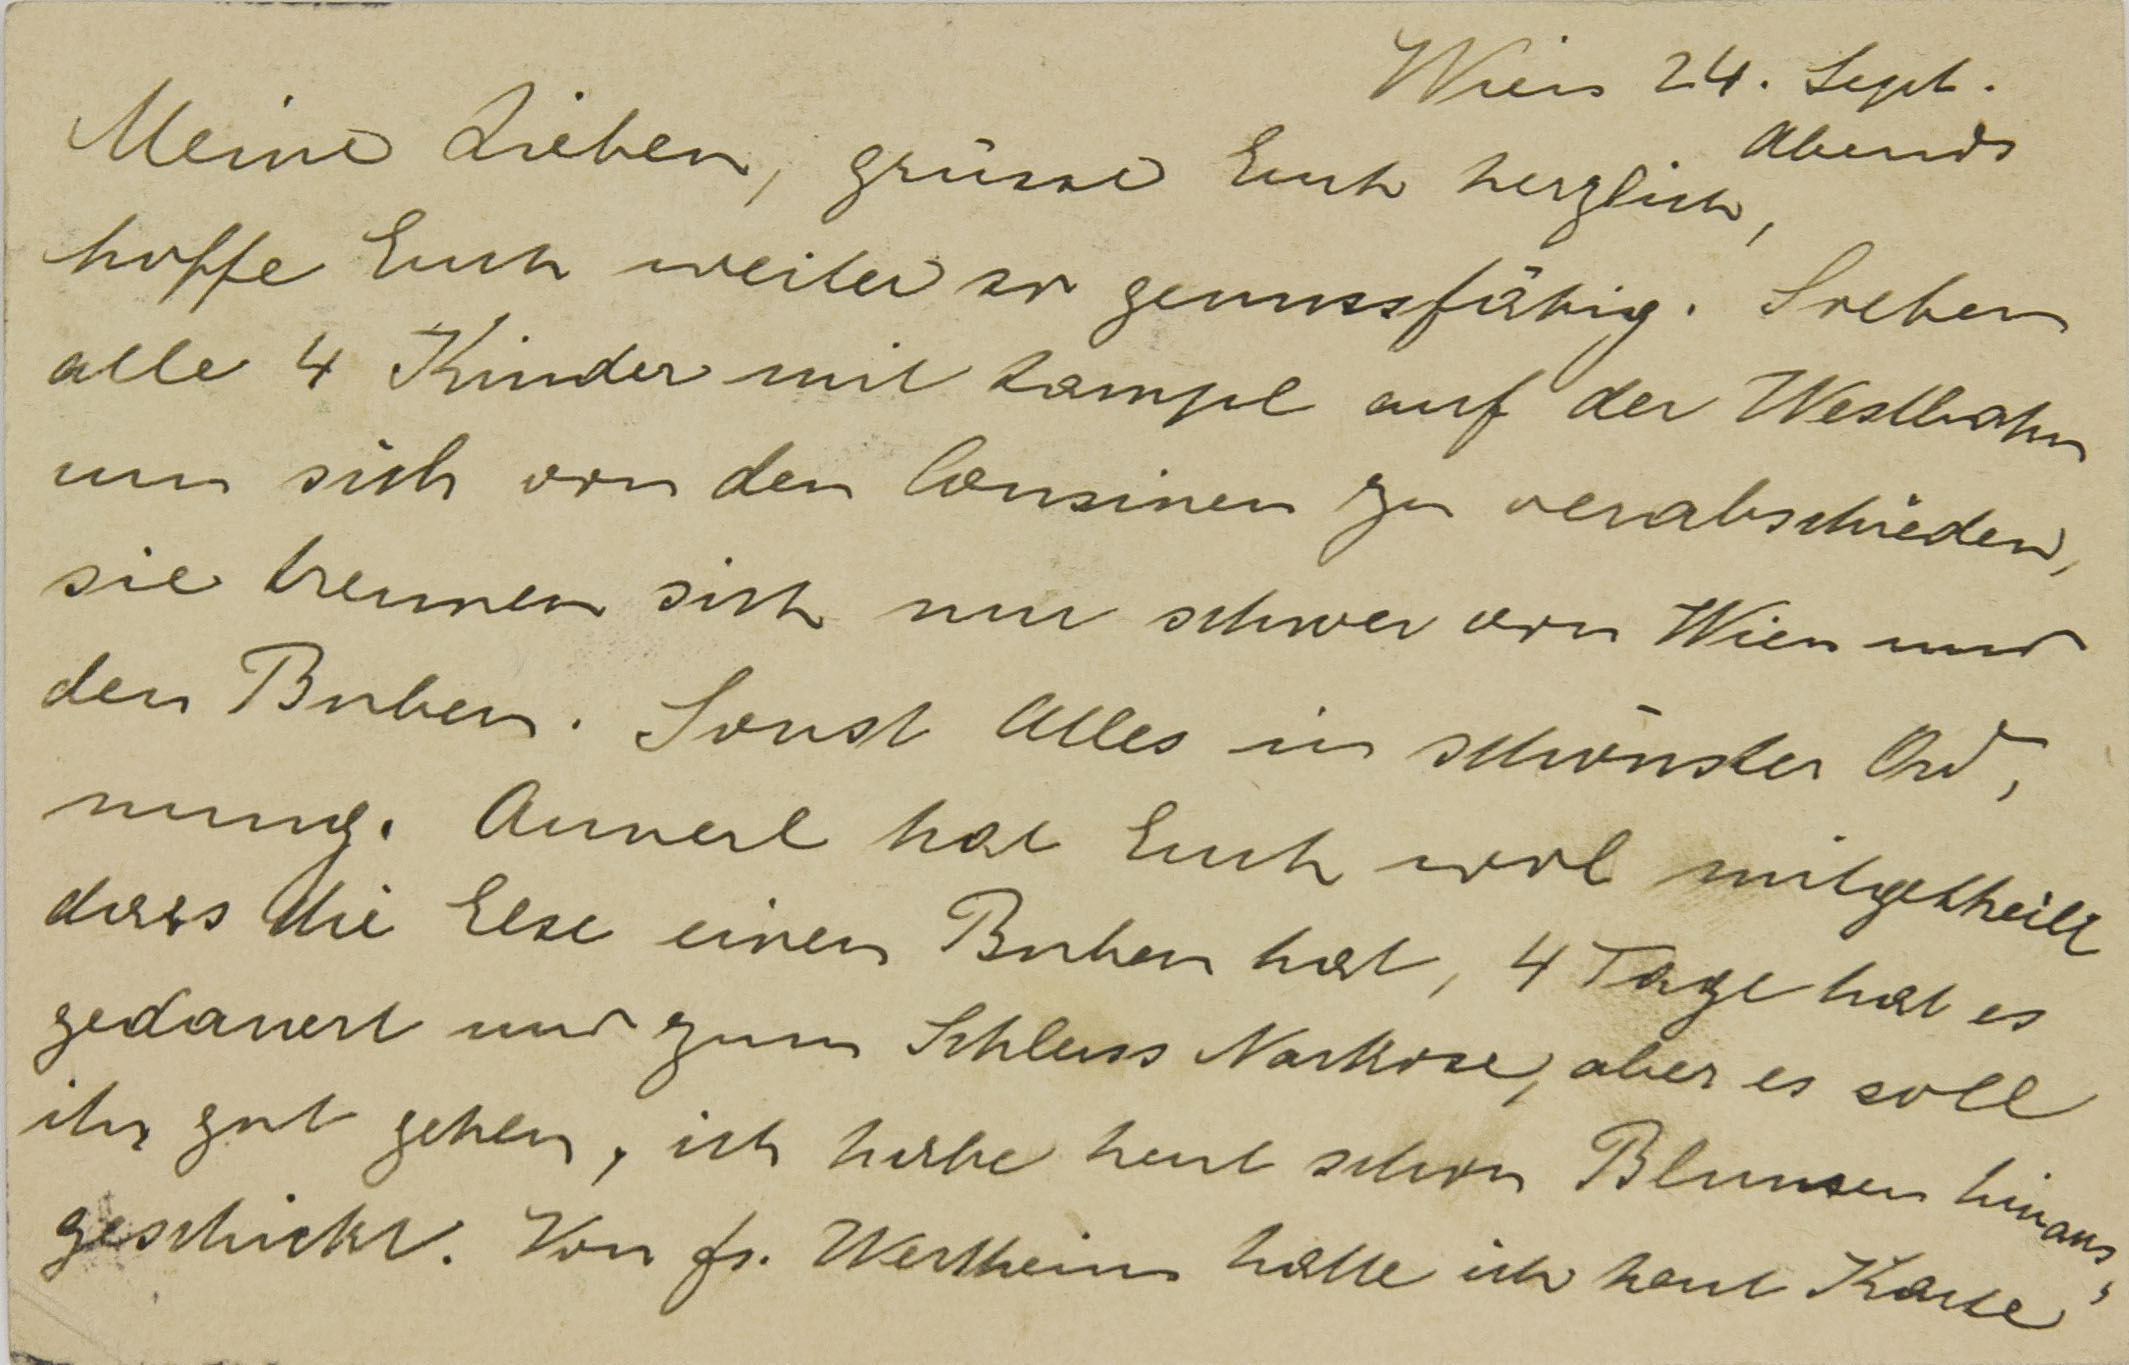 Wien 24. Sept.
Abends
Meine Lieben, grüsse Euch herzlich,
hoffe Euch weiter so genussfähig. Soeben
alle 4 Kinder mit auf der Westbahn
um sich von den Cousinen zu verabschieden,
sie trennen sich nur schwer von Wien und
den Buben. Sonst Alles in schönster Ord,
nung. Annerl hat Euch wol mitgetheilt
dass die Else einen Buben hat, 4 Tage hat es
gedauert und zum Schluss Narkose, aber es soll
ihr gut gehen, ich habe heut schon Blumen hinaus,
geschickt. Von fr. Wertheim hatte ich heut Karte